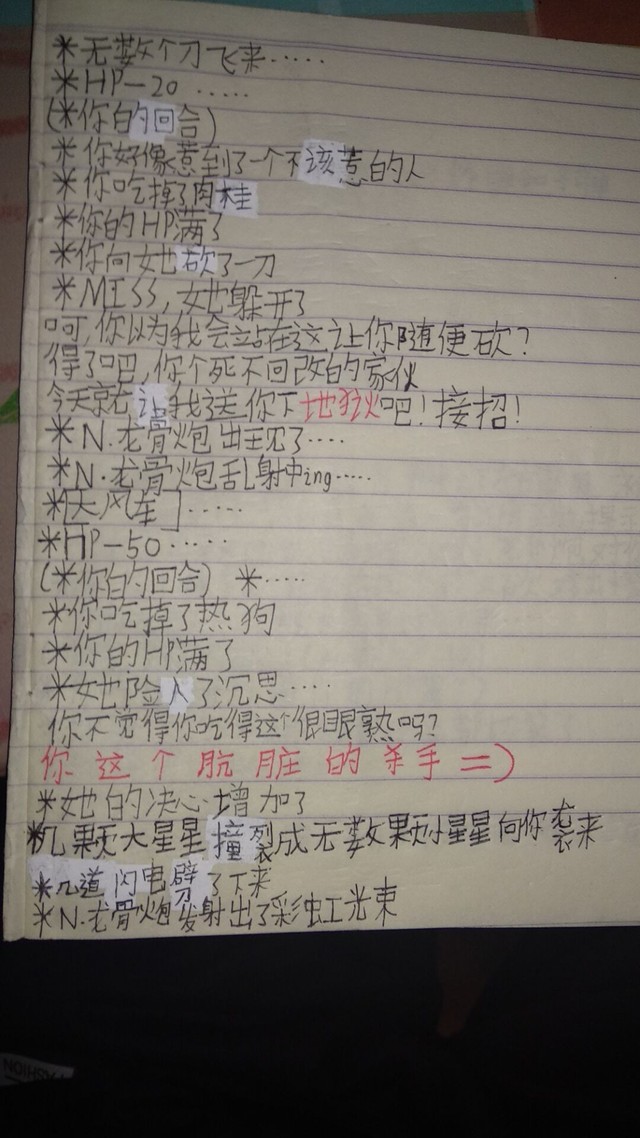 *无数个刀飞来……
*HP-20 ……
(*你的回合)
*你好像惹到了一个不该惹的人
*你吃掉了肉桂
*你的HP满了
*你向她砍了一刀
*MISS,她躲开了
呵,你以为我会站在这让你随便砍?
得了吧,你个死不回改的家伙
今天就让我送你下地狱吧!接招!
*N.龙骨炮出现了....
*N.龙骨炮乱射中ing.....
*[大风车]......
*HP-50......
(*你的回合) *.....
*你吃掉了热狗
*你的HP满了
*她陷入了沉思....
你不觉得你吃得这个很眼熟吗?
你这个肮脏的杀手=)
*她的决心增加了
*几颗大星星撞裂成无数颗小星星向你袭来
*几道闪电劈了下来
*N.龙骨炮发射出了彩虹光束